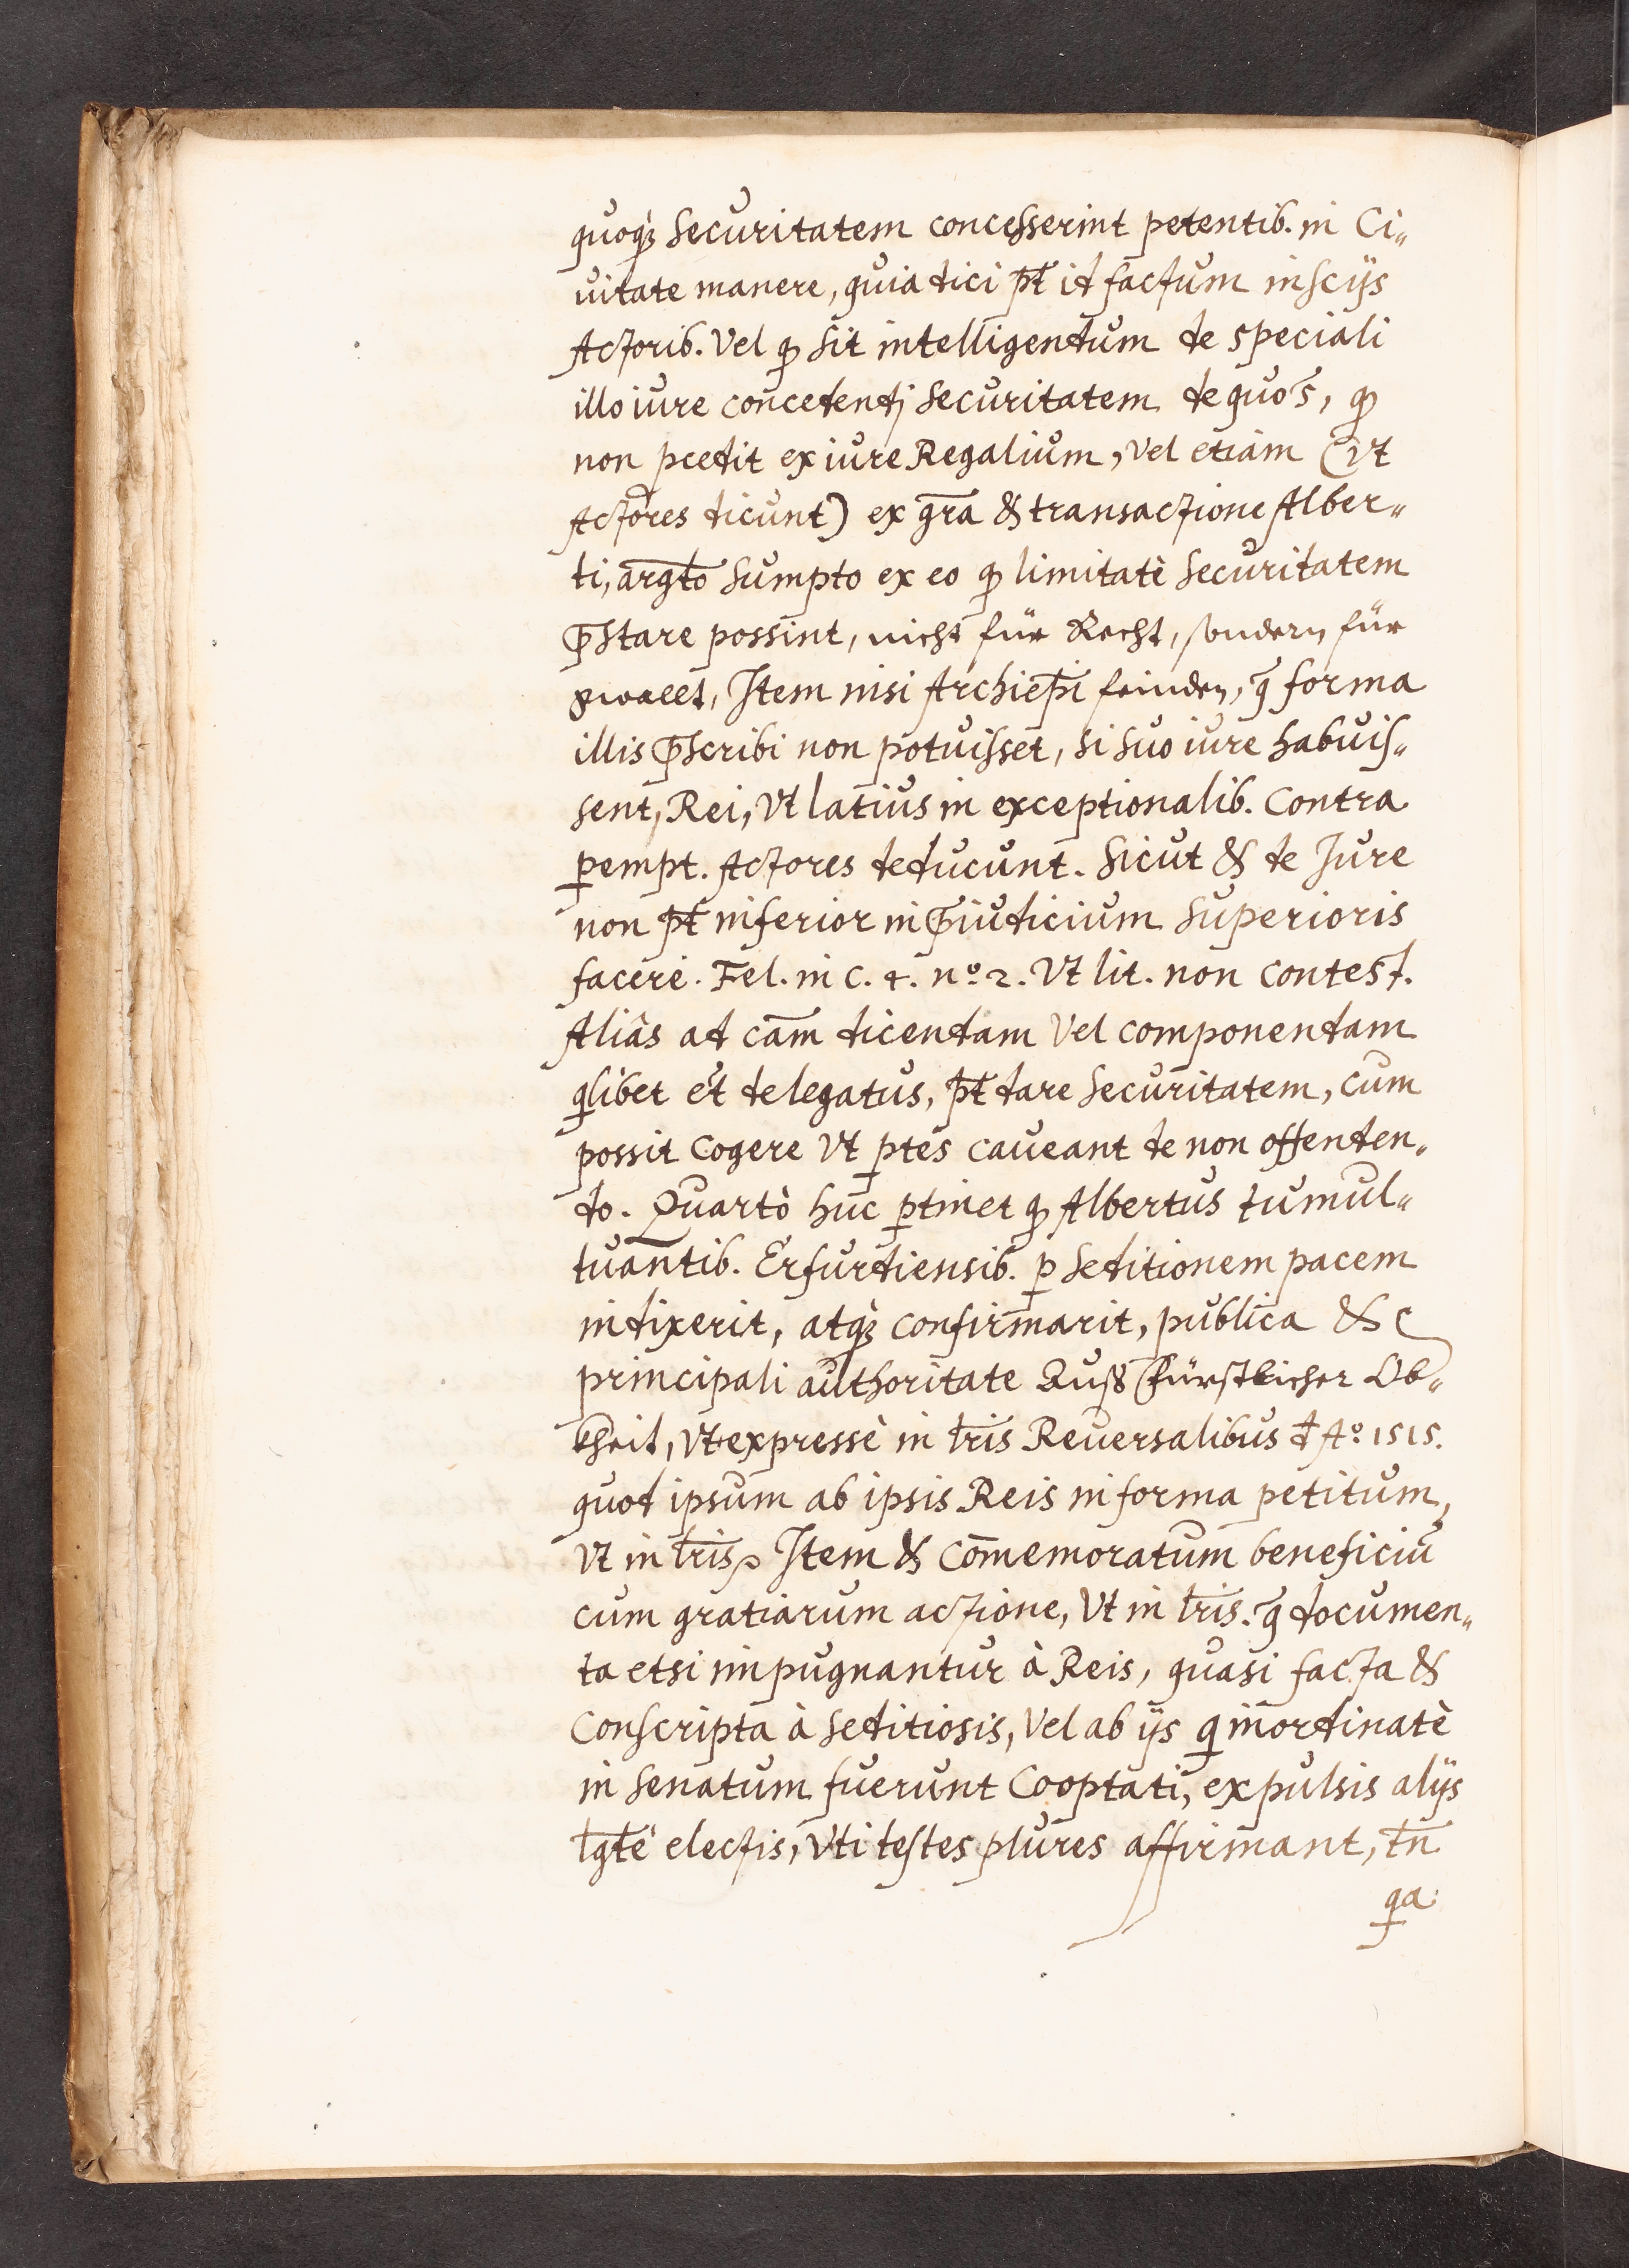 quoq; securitatem concesserint petentib. in Ci„
uitate manere, quia dici pt̄ id factum inscijs
Actorib. Vel qp sit intelligendum de speciali
illo iure concedendj securitatem de quo s̄, qp
non pcedit ex iure Regalium, Vel etiam (vt
Actores dicunt) ex gr̄a & transactione Alber„
ti, argt̄o sumpto ex eo qp limitatè securitatem
p̄stare possint, nicht für Recht, sondern für
gwaelt, Item nisi Archiep̄i feinden, q̄ forma
illis p̄scribi non potuisset, si suo iure habuis„
sent, Rei, Vt latius in exceptionalib. contra
pempt. Actores deducunt. Sicut & de Jure
non pt̄ inferior in p̄iudicium superioris
facere. Fel. in c. 4. nº. 2. Vt lit. non contest.
Aliâs ad cām dicendam Vel componendam
qlibet et delegatus, pt̄ dare securitatem, cum
possit cogere Vt ptes caueant de non offenden„
do. Quartò huc ptinet qp Albertus tumul„
tuantib. Erfurdiensib. p seditionem pacem
indixerit, atq; confirmarit, publica &
principali authoritate Auß Fürstlicher Ob„
kheit, Vt expressè in lr̄is Reuersalibus đ Aº. 1515.
quod ipsum ab ipsis Reis in forma petitum,
Vt in lr̄is. Item & com̄emoratum beneficiū
cum gratiarum actione, Vt in lr̄is. q̄ documen„
ta etsi impugnantur à Reis, quasi facta &
Conscripta à seditiosis, Vel ab ijs q inordinatè
in senatum fuerunt Cooptati, expulsis alijs
lgt̄e electis, Vti testes plures affirmant, tn̄
qa